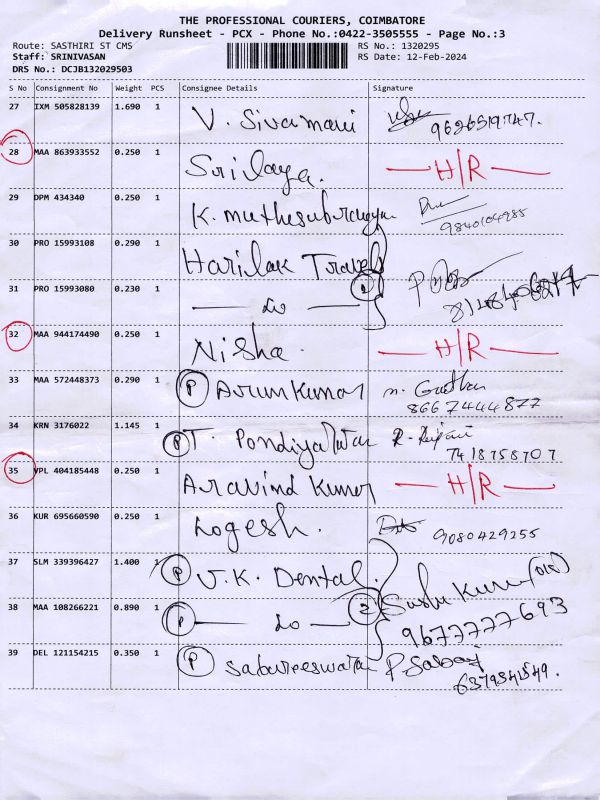 THE PROFESSIONAL COURIERS, COIMBATORE
Delivery Runsheet - PCX - Phone No.:0422-3505555 - Page No.:3
Route: SASTHIRI ST CMS RS No.: 1320295
Staff: SRINIVASAN RS Date: 12-Feb-2024
DRS No.: DCJB132029503
S No Consignment No Weight PCS Consignee Details Signature
27 IXM 505828139 1.690 1 V. Sivamani
28 MAA 863933552 0.250 1 Srilaya. H/R
29 DPM 434340 0.250 1 K. 9840104985
30 PRO 15993108 0.290 1 Harilak Travels
31 PRO 15993080 0.230 1 2
32 MAA 944174490 0.250 1 Nisha. H/R
33 MAA 572448373 0.290 1 P Arun Kumar
8667444877
34 KRN 3176022 1.145 1 P T.
7418758707
35 VPL 404185448 0.250 1 Aravind Kumar H/R
36 KUR 695660590 0.250 1 Logesh. 9080429255
37 SLM 339396427 1.400 1 P V.K. Dental
38 MAA 108266221 0.890 1 P 2 9677777693
39 DEL 121154215 0.350 1 P Sabareeswaran